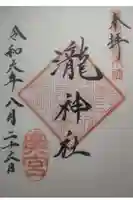 奉拝
瀧神社
令和元年八月二十六日
奥宮